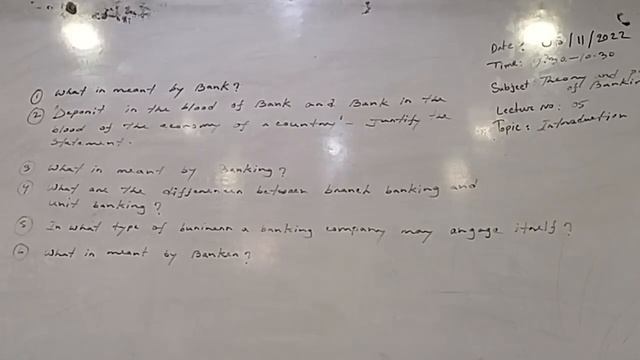 Date: 03/11/2022
Time: 9:30-10:30
Subject: Theory and
of Banking
Lecture No: 05
Topic: Introduction
① What is meant by Bank?
② "Deposit is the blood of Bank and Bank is the
blood of the economy of a country" - Justify the
statement.
③ What is meant by Banking?
④ What are the differences between branch banking and
unit banking?
⑤ In what type of business a banking company may engage itself?
⑥ What is meant by Banker?